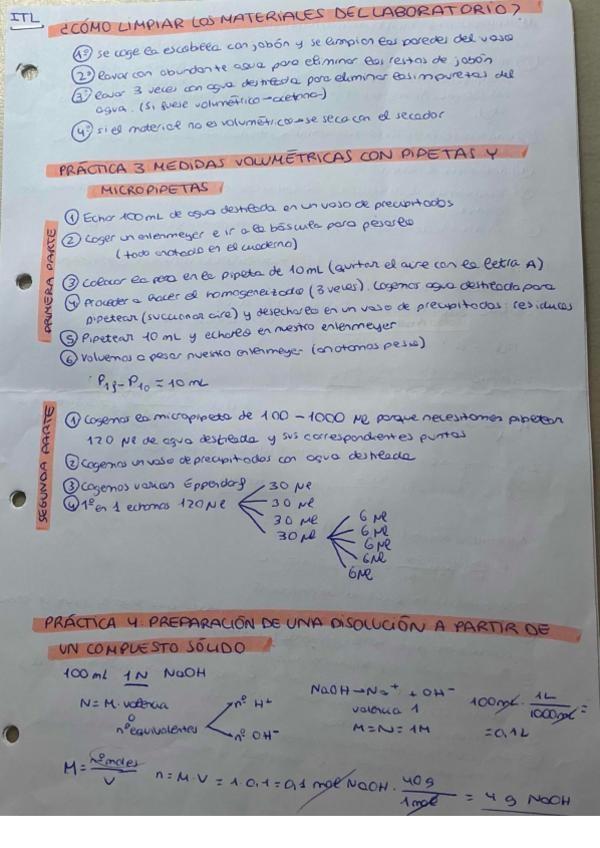 ITL
¿CÓMO LIMPIAR LOS MATERIALES DEL LABORATORIO?
1º se coge la escobilla con jabón y se limpian las paredes del vaso
2º lavar con abundante agua para eliminar los restos de jabón
3º lavar 3 veces con agua destilada para eliminar las impurezas del
agua. (Si fuese volumétrico → acetona)
4º si el material no es volumétrico → se seca con el secador
PRÁCTICA 3 MEDIDAS VOLUMÉTRICAS CON PIPETAS Y
MICROPIPETAS
PRIMERA PARTE
① Echar 100mL de agua destilada en un vaso de precipitados
② Coger un enlenmeyer e ir a la báscula para pesarlo
(todo anotado en el cuaderno)
③ Colocar la pera en la pipeta de 10mL (quitar el aire con la letra A)
④ Proceder a hacer el homogeneizado (3 veces). Cogemos agua destilada para
pipetear (succionar aire) y desecharlo en un vaso de precipitados: residuos
⑤ Pipetear 10 mL y echarlo en nuestro enlenmeyer
⑥ Volvemos a pesar nuestro enlenmeyer (anotamos peso)
P1f - P10 = 10 mL
SEGUNDA PARTE
① Cogemos la micropipeta de 100 - 1000 μl porque necesitamos pipetear
120 μl de agua destilada y sus correspondientes puntas
② Cogemos un vaso de precipitados con agua destilada
③ Cogemos varios Eppendorf
④ 1º en 1 echamos 120 μl
30 μl
30 μl
30 μl
30 μl
6 μl
6 μl
6 μl
6 μl
6 μl
PRÁCTICA 4: PREPARACIÓN DE UNA DISOLUCIÓN A PARTIR DE
UN COMPUESTO SÓLIDO
100 ml 1N NaOH
N = M · valencia
o
nº equivalentes
nº H+
nº OH-
NaOH → Na+ + OH-
valencia 1
M = N = 1M
100mL · 1L / 1000mL =
= 0,1L
M = nº moles / V
n = M · V = 1 · 0,1 = 0,1 mol NaOH · 40g / 1mol = 4 g NaOH